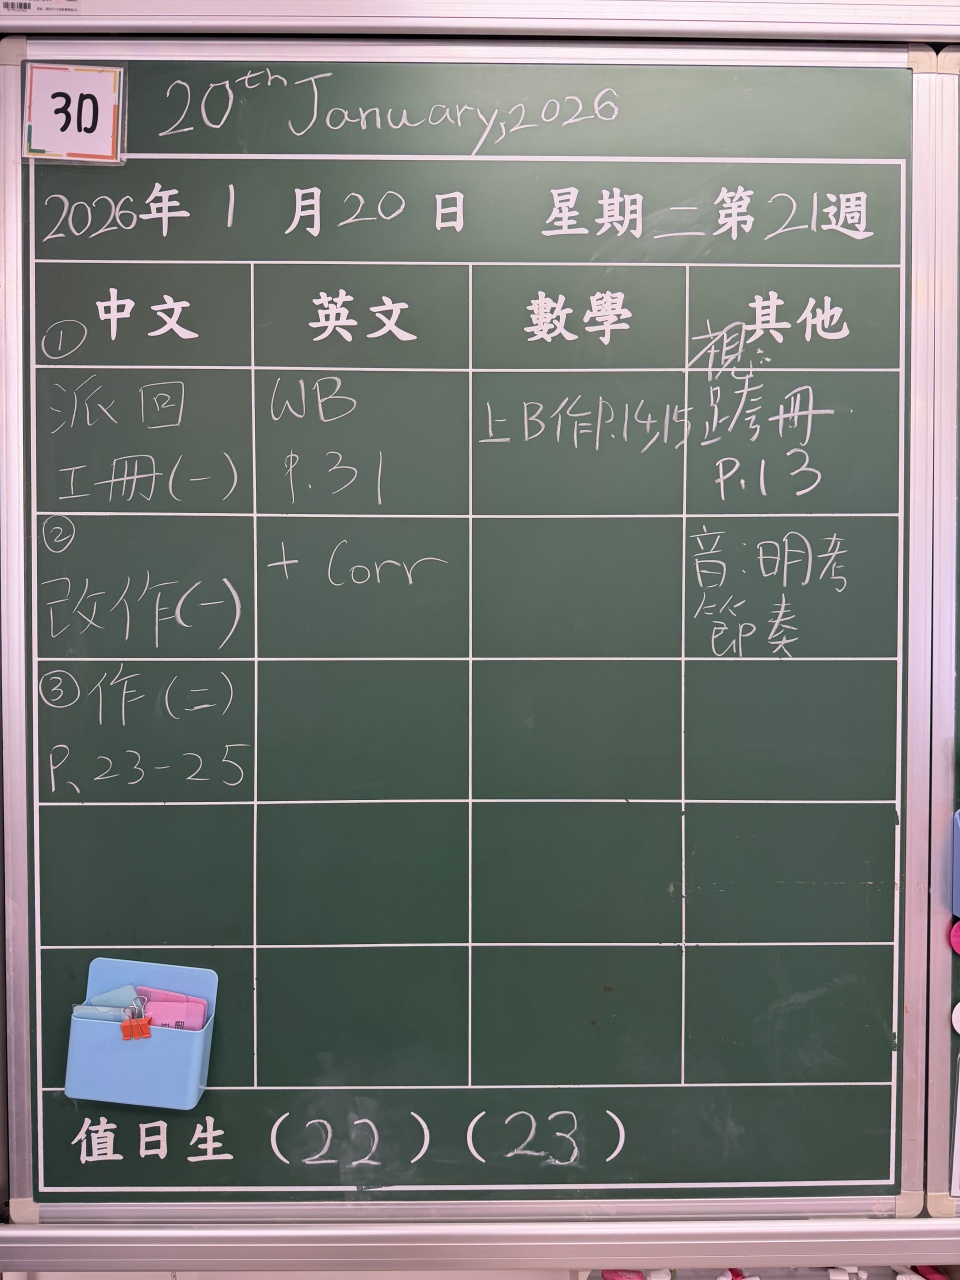 3D
20th January, 2026
2026年1月20日 星期二第21週
中文 英文 數學 其他
①
派回
工冊(一)
②
改作(一)
③作(二)
P.23-25
WB
P.31
+ Corr
上B作P.14,15
視:
跨冊
P.13
音:明考
節奏
值日生 (22) (23)